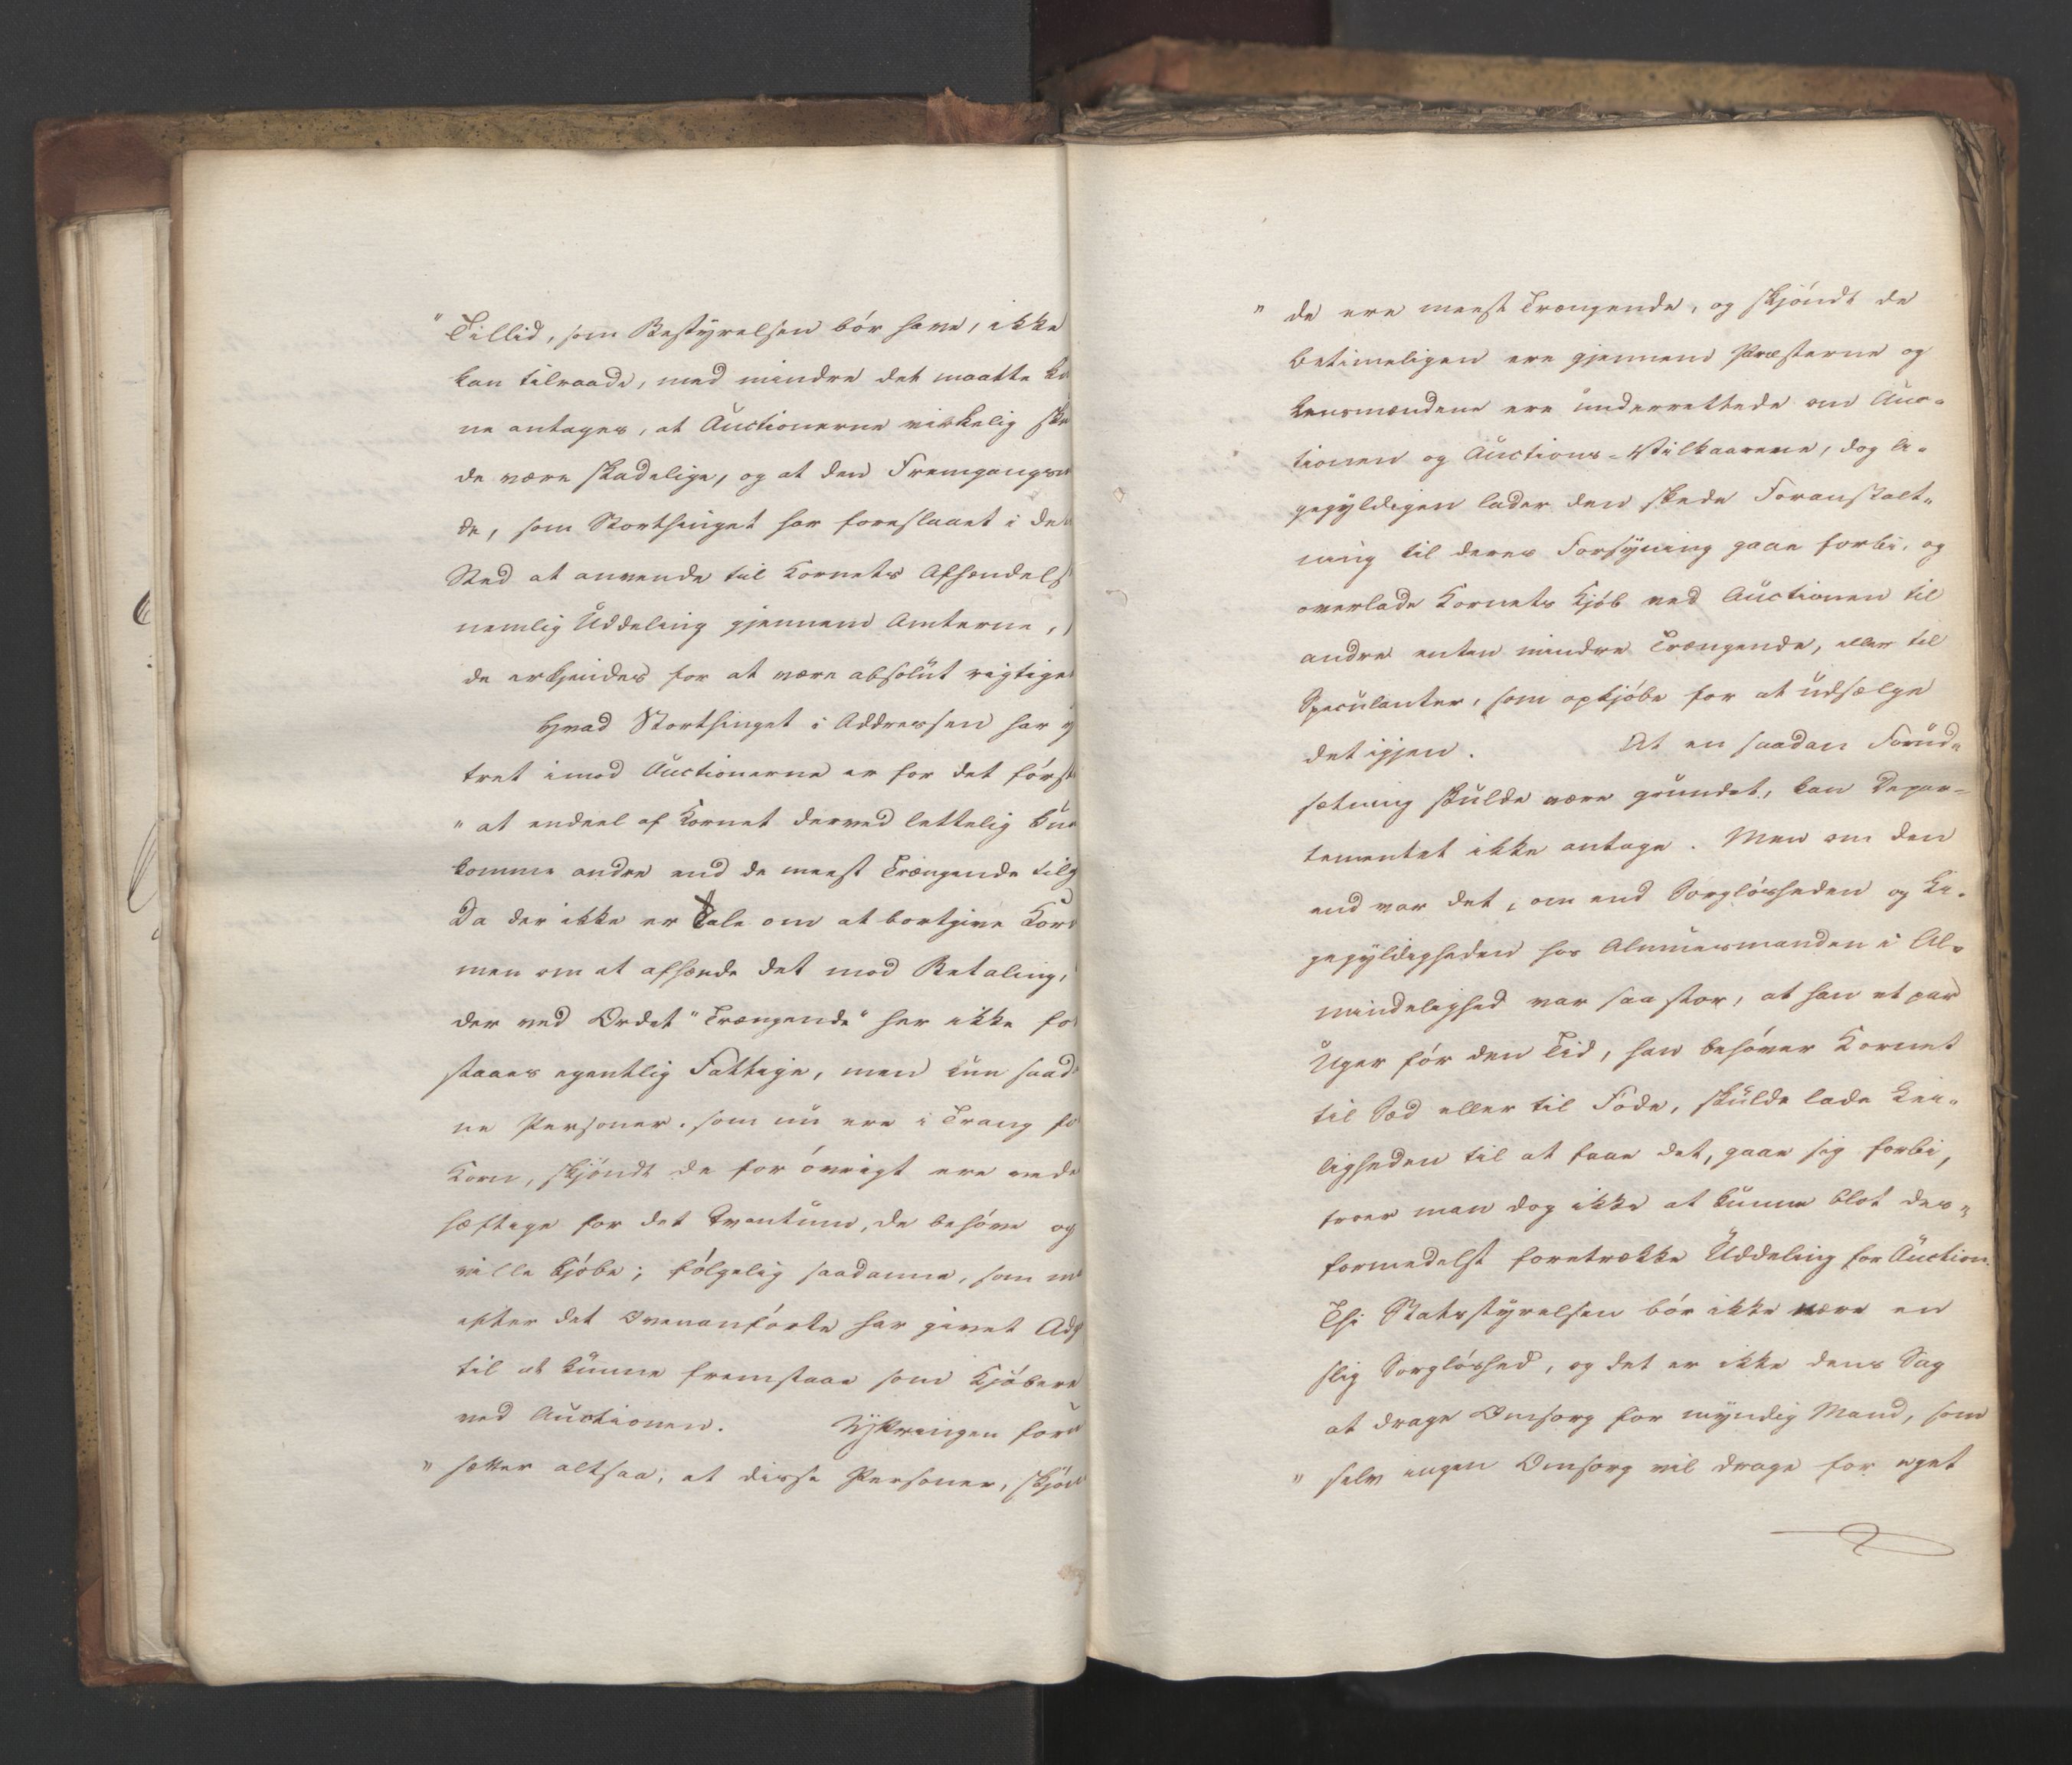 " Tillid, som Bestyrelsen bör have, ikke
kan tilraade, med mindre det maatte ku
ne antages, at Auctionerne virkelig sku
de være skadelige, og at den Fremgangsm
de, som Storthinget har foreslaaet i det
Sted at anvende til Kornets Afhændels
nemlig Uddeling gjennem Amterne,
de erkjendes for at være absolut rigtige
Hvad Storthinget i Addressen har y
tret imod Auctionerne er for det först
" at endeel af Kornet derved lettelig kun
komme andre end de meest Trængende tilg
Da der ikke er Tale om at bortgive Kor
men om at afhænde det mod Betaling,
der ved Ordet "Trængende" her ikke fo
staaes egentlig Fattige, men kun saad
ne Personer, som nu ere i Trang fo
Korn, skjöndt de for övrigt ere vede
hæftige for det Qvantum, de behöve og
ville kjöbe; fölgelig saadanne, som m
efter det Ovenanförte har givet Adg
til at kunne fremstaae som Kjöbere
ved Auctionen. Yttringen foru
" sætter altsaa, at disse Personer, skjön
" de ere meest Trængende, og skjöndt de
betimeligen ere gjennem Præsterne og
Lensmændene ere underrettede om Auc-
tionen og Auctions-Vilkaarene, dog li-
gegyldigen lader den skede Foranstalt-
ning til deres Forsyning gaae forbi, og
overlade Kornets Kjöb ved Auctionen til
andre enten mindre Trængende, eller til
Speculanter, som opkjöbe for at udsælge
det igjen. At en saadan Forud-
sætning skulde være grundet, kan Depar-
tementet ikke antage. Men om den
end var det, om end Sorglösheden og Li-
gegyldigheden hos Almuesmanden i Al-
mindelighed var saa stor, at han et par
Uger för den Tid, han behöver Kornet
til Sæd eller til Föde, skulde lade Lei-
ligheden til at faae det, gaae sig forbi,
troer man dog ikke at kunne blot des-
formedelst foretrække Uddeling for Auction.
Thi Statsstyrelsen bör ikke nære en
slig Sorglöshed, og det er ikke dens Sag
at drage Omsorg for myndig Mand, som
" selv ingen Omsorg vil drage for eget